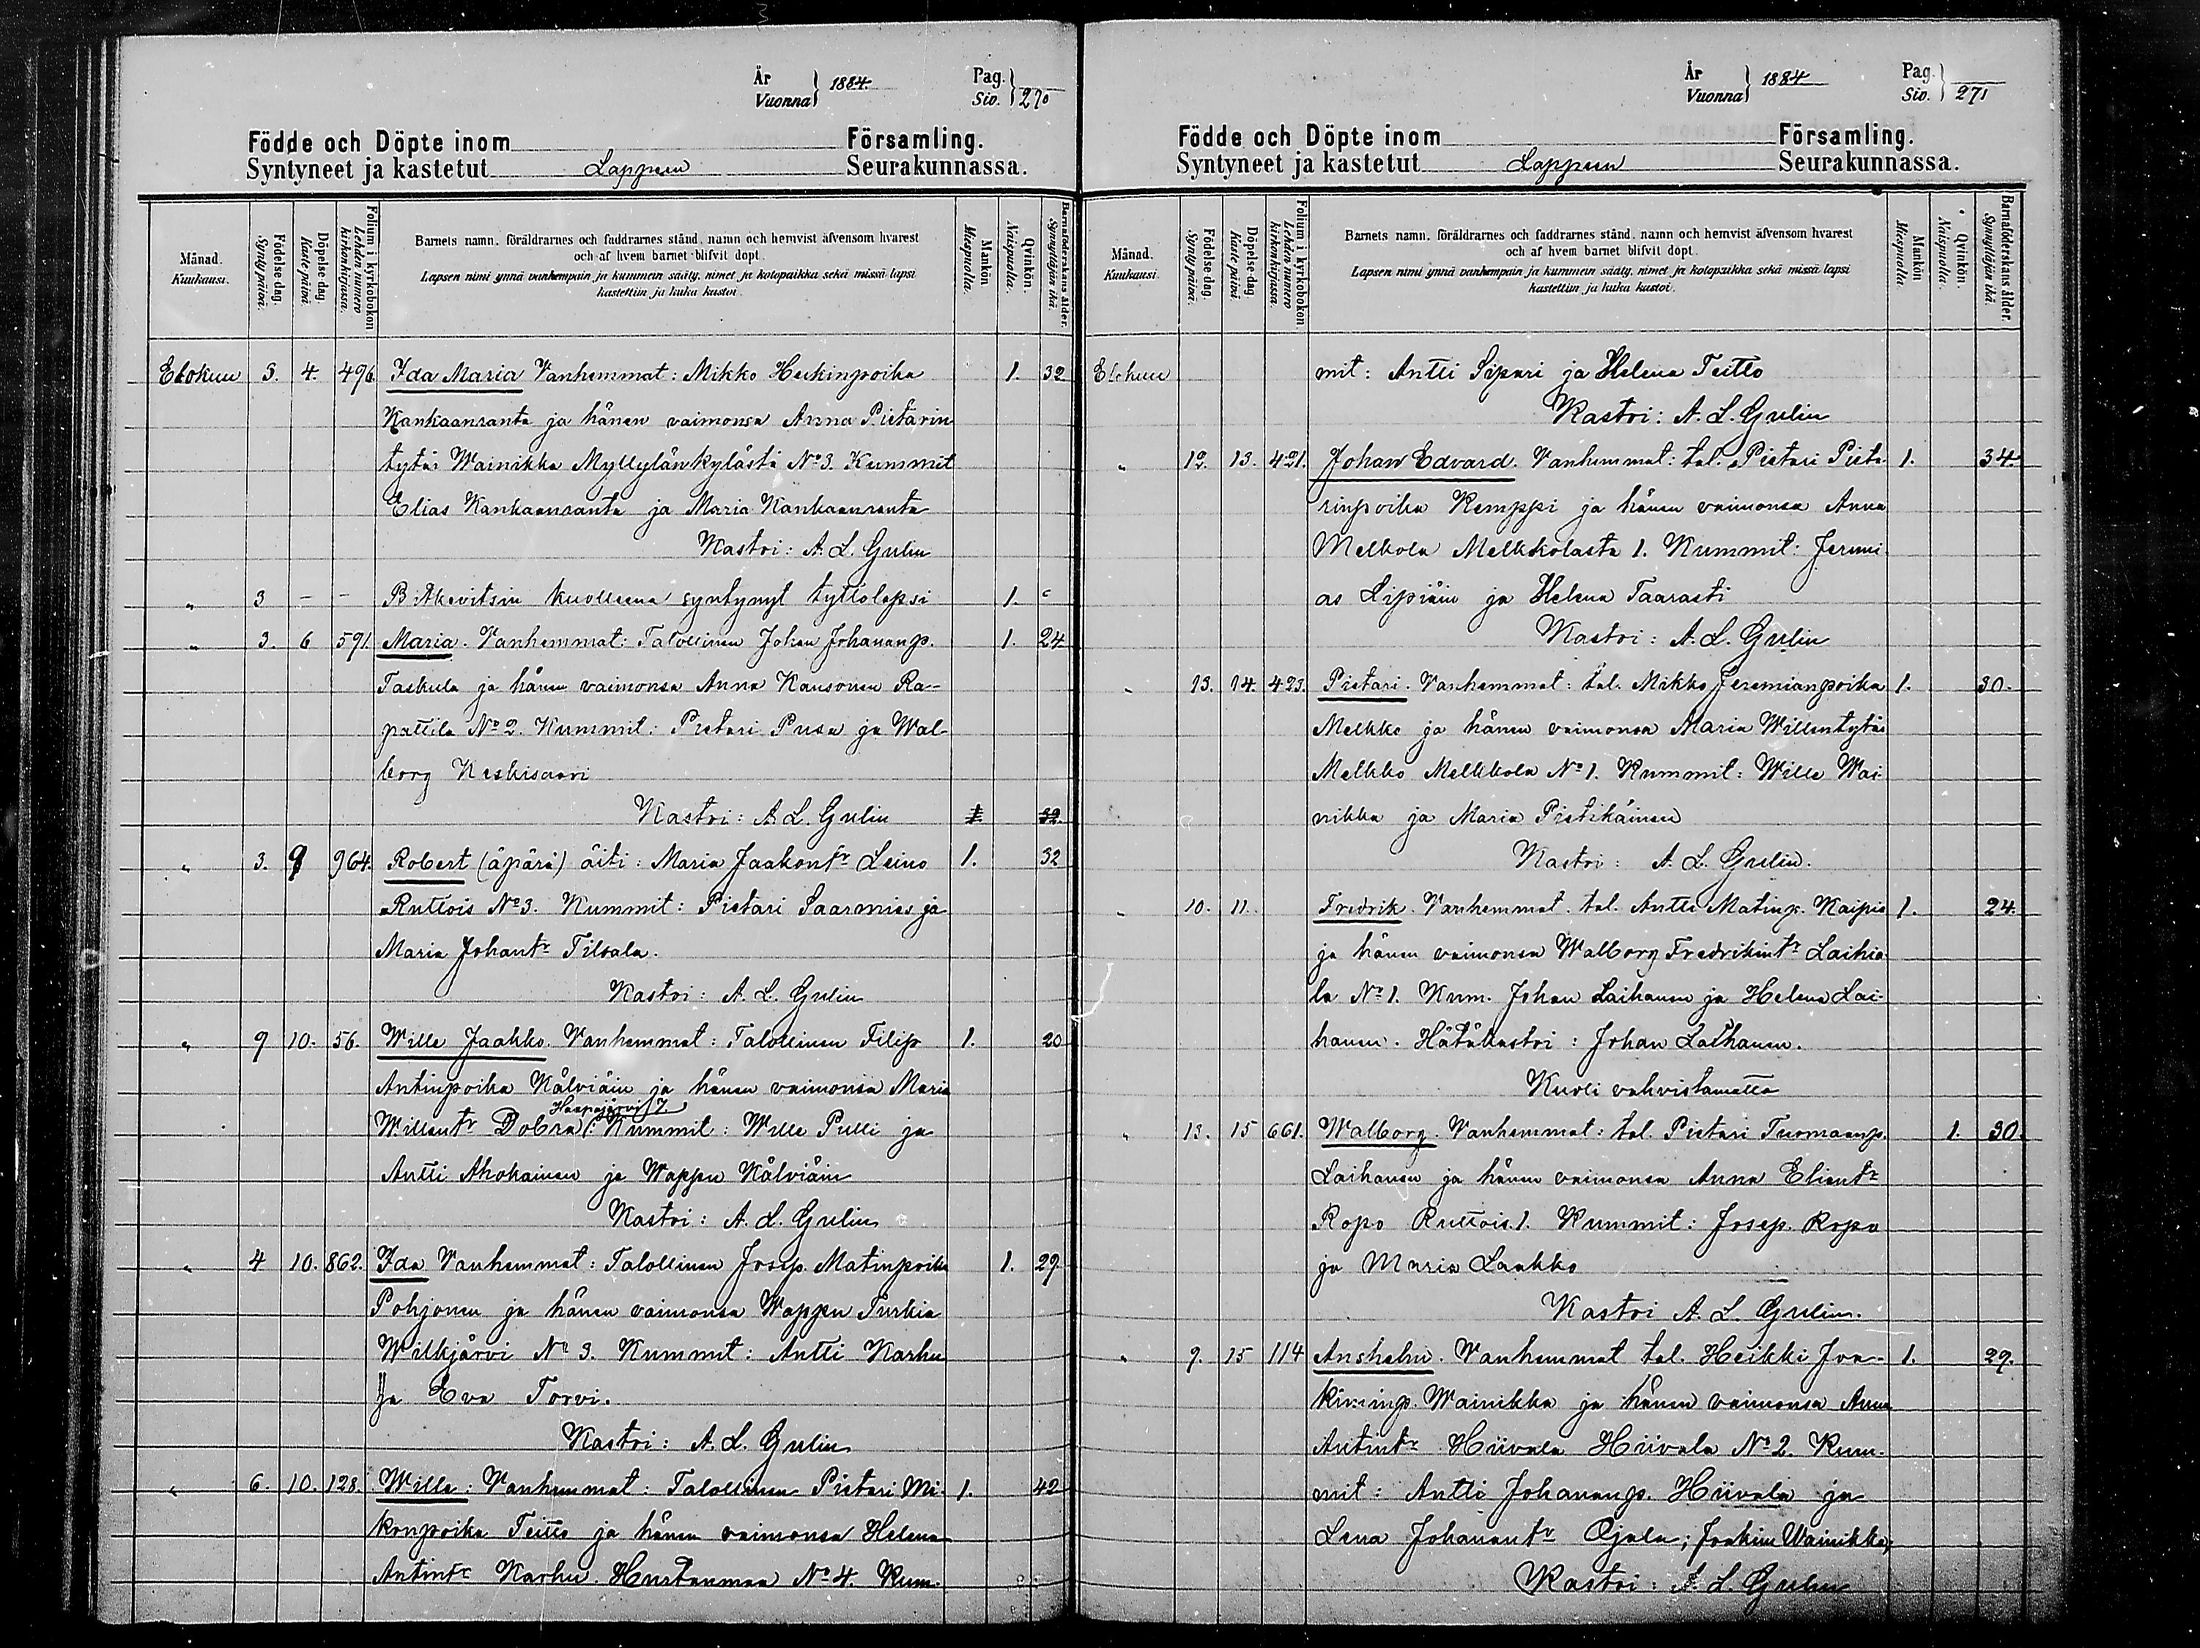 År
Vuonna } 1884.
Pag.
Siv. } 270
Födde och Döpte inom Församling.
Syntyneet ja kastetut Lappeen Seurakunnassa.
Månad.
Kuukausi.
Födelse-dag.
Synty päivä.
Döpelse-dag.
Kaste päivä.
Folium i kyrkoboken
Lehden numero
kirkonkirjassa.
Barnets namn, föräldrarnes och faddrarnes stånd, namn och hemvist äfvensom hvarest
och af hvem barnet blifvit döpt.
Lapsen nimi ynnä vanhempain ja kummein sääty, nimet ja kotopaikka sekä missä lapsi
kastettiin ja kuka kastoi.
Mankön
Miespuolia.
Qvinkön.
Naispuolia.
Barnaföderskans ålder.
Synnyttäjän ikä.
Elokuu 3. 4. 496. Ida Maria Vanhemmat: Mikko Heikinpoika 1. 32
Kankaanranta ja hänen vaimonsa Anna Pietarin
tytär Wainikka Myllylänkylästä No 3. Kummit
Elias Kankaanranta ja Maria Kankaanranta
Kastoi: A. L. Gulin
„ 3 – – kuolleena syntynyt tyttölapsi 1.
„ 3. 6 591. Maria. Vanhemmat: Talollinen Johan Johananp. 1. 24.
Taskula ja hänen vaimonsa Anna Kansonen Ra-
pattila No 2. Kummit: Pietari Pusa ja Wal-
borg Keskisaari
Kastoi: A. L. Gulin 1. 32.
„ 3. 9 964. Robert (äpärä) äiti: Maria Jaakontr Leino 1. 32
Ruttois No 3. Kummit: Pietari Saarmies ja
Maria Johantr Tilsala.
Kastoi: A. L. Gulin
„ 9 10. 56. Wille Jaakko. Vanhemmat: Talollinen Filip 1. 20
Antinpoika Kälviäin ja hänen vaimonsa Maria
Haapajärvi 7.
Willentr Dobra. Kummit: Wille Pulli ja
Antti Ahokainen ja Wappu Kälviäin
Kastoi: A. L. Gulin
„ 4 10. 862. Ida Vanhemmat: Talollinen Josep. Matinpoika 1. 29
Pohjonen ja hänen vaimonsa Wappu Turkia
Wilkjärvi No 3. Kummit: Antti Karhu
Ja Eva Torvi.
Kastoi: A. L. Gulin
„ 6. 10. 128. Wille: Vanhemmat: Talollinen Pietari Mi- 1. 42
konpoika Teitto ja hänen vaimonsa Helena
Antintr Karhu. Hurtanmaa No 4. Kum-
År
Vuonna } 1884
Pag.
Siv. } 271
Födde och Döpte inom Församling.
Syntyneet ja kastetut Lappeen Seurakunnassa.
Månad.
Kuukausi.
Födelse-dag.
Synty päivä.
Döpelse-dag
Kaste päivä
Folium i kyrkoboken
Lehden numero
kirkonkirjassa.
Barnets namn, föräldrarnes och faddrarnes stånd, namn och hemvist äfvensom hvarest
och af hvem barnet blifvit döpt.
Lapsen nimi ynnä vanhempain ja kummein sääty, nimet ja kotopaikka sekä missä lapsi
kastettiin ja kuka kastoi.
Mankön
Miespuolia.
Qvinkön.
Naispuolia.
Barnaföderskans ålder.
Synnyttäjän ikä.
Elokuu mit: Antti Sipari ja Helena Teitto
Kastoi: A. L. Gulin
„ 12. 13. 421. Johan Edvard. Vanhemmat: tal. Pietari Pieta- 1. 34.
rinpoika Kemppi ja hänen vaimonsa Anna
Melkola Melkkolasta 1. Kummit: Jeremi
as Lipiäin ja Helena Taarasti
Kastoi: A. L. Gulin
„ 13. 14. 423. Pietari. Vanhemmat: tal. Mikko Jeremianpoika 1. 30.
Melkko ja hänen vaimonsa Maria Willentytär
Melkko Melkkola No 1. Kummit: Wille Wai-
nikka ja Maria Pietikäinen
Kastoi: A. L. Gulin.
„ 10. 11. Fredrik. Vanhemmat. tal. Antti Matinp. Kaipia 1. 24.
ja hänen vaimonsa Walborg Fredrikintr Laihia
la No 1. Kum. Johan Laihanen ja Helena Lai-
hanen. Hätäkastoi: Johan Laihanen.
Kuoli vahvistamatta
„ 13. 15 661. Walborg. Vanhemmat: tal. Pietari Tuomaanp. 1. 30.
Laihanen ja hänen vaimonsa Anna Eliantr
Ropo Ruttois. 1. Kummit: Josep. Ropo
ja Maria Laakko
Kastoi A. L. Gulin.
„ 9. 15 114 Anshelm. Vanhemmat tal. Heikki Joa- 1. 29.
kiminp. Wainikka ja hänen vaimonsa Anna
Antintr Hiivala Hiivala No 2. Kum-
mit: Antti Johananp. Hiivala ja
Lena Johanantr Ojala; Joakim Wainikka,
Kastoi: A. L. Gulin